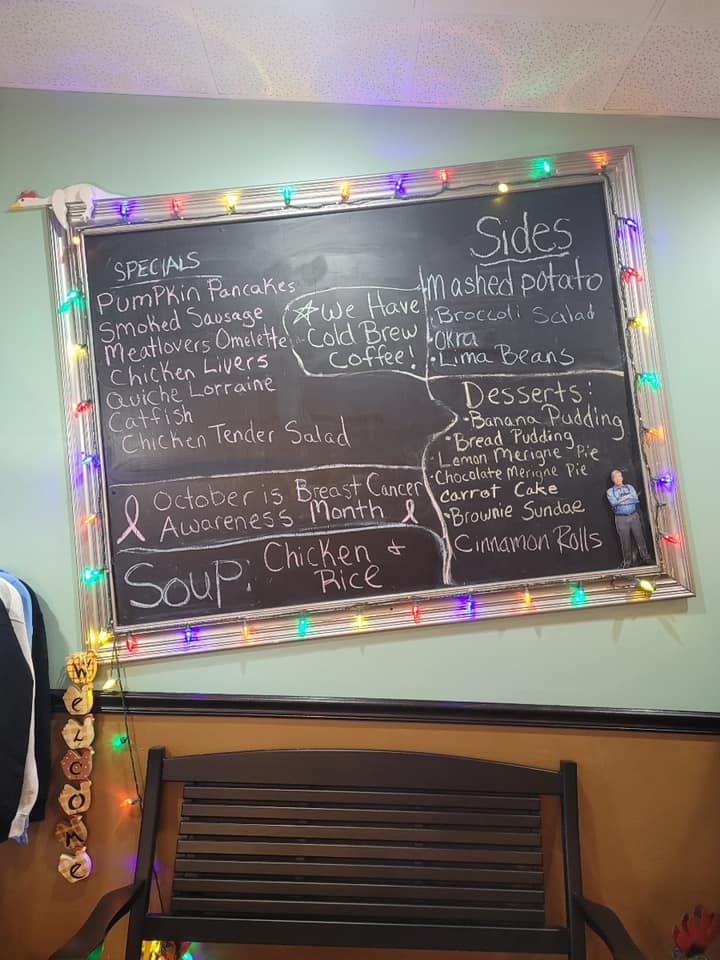 SPECIALS
PumPkin Pancakes
Smoked Sausage
Meatlovers Omelette
Chicken Livers
Quiche Lorraine
Catfish
Chicken Tender Salad
We Have
Cold Brew
Coffee!
Sides
Mashed potato
Broccoli Salad
• Okra
• Lima Beans
Desserts:
• Banana Pudding
• Bread Pudding
• Lemon Merigne Pie
• Chocolate Merigne Pie
Carrot Cake
• Brownie Sundae
Cinnamon Rolls
October is Breast Cancer
Awareness Month
Soup: Chicken &
Rice
WeLCOMe